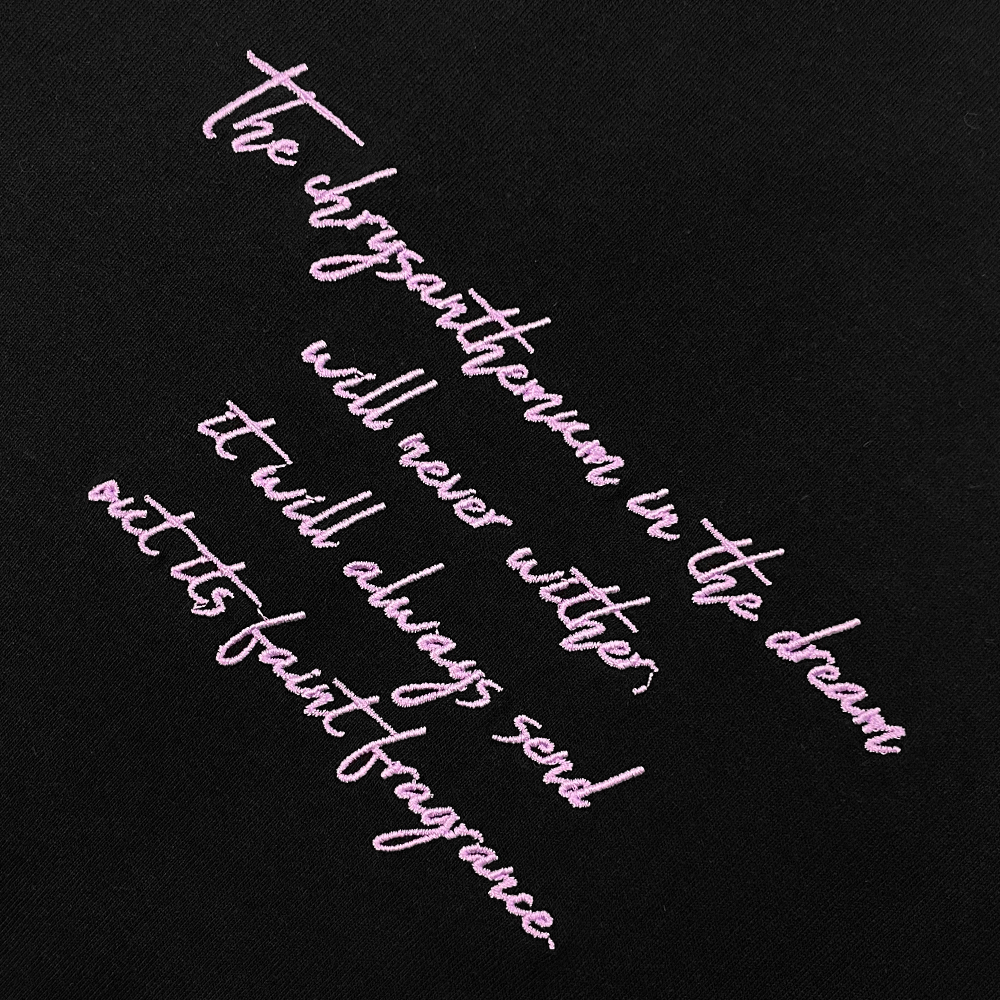 The chrysanthemum in the dream
will never wither,
it will always send
out its faint fragrance,